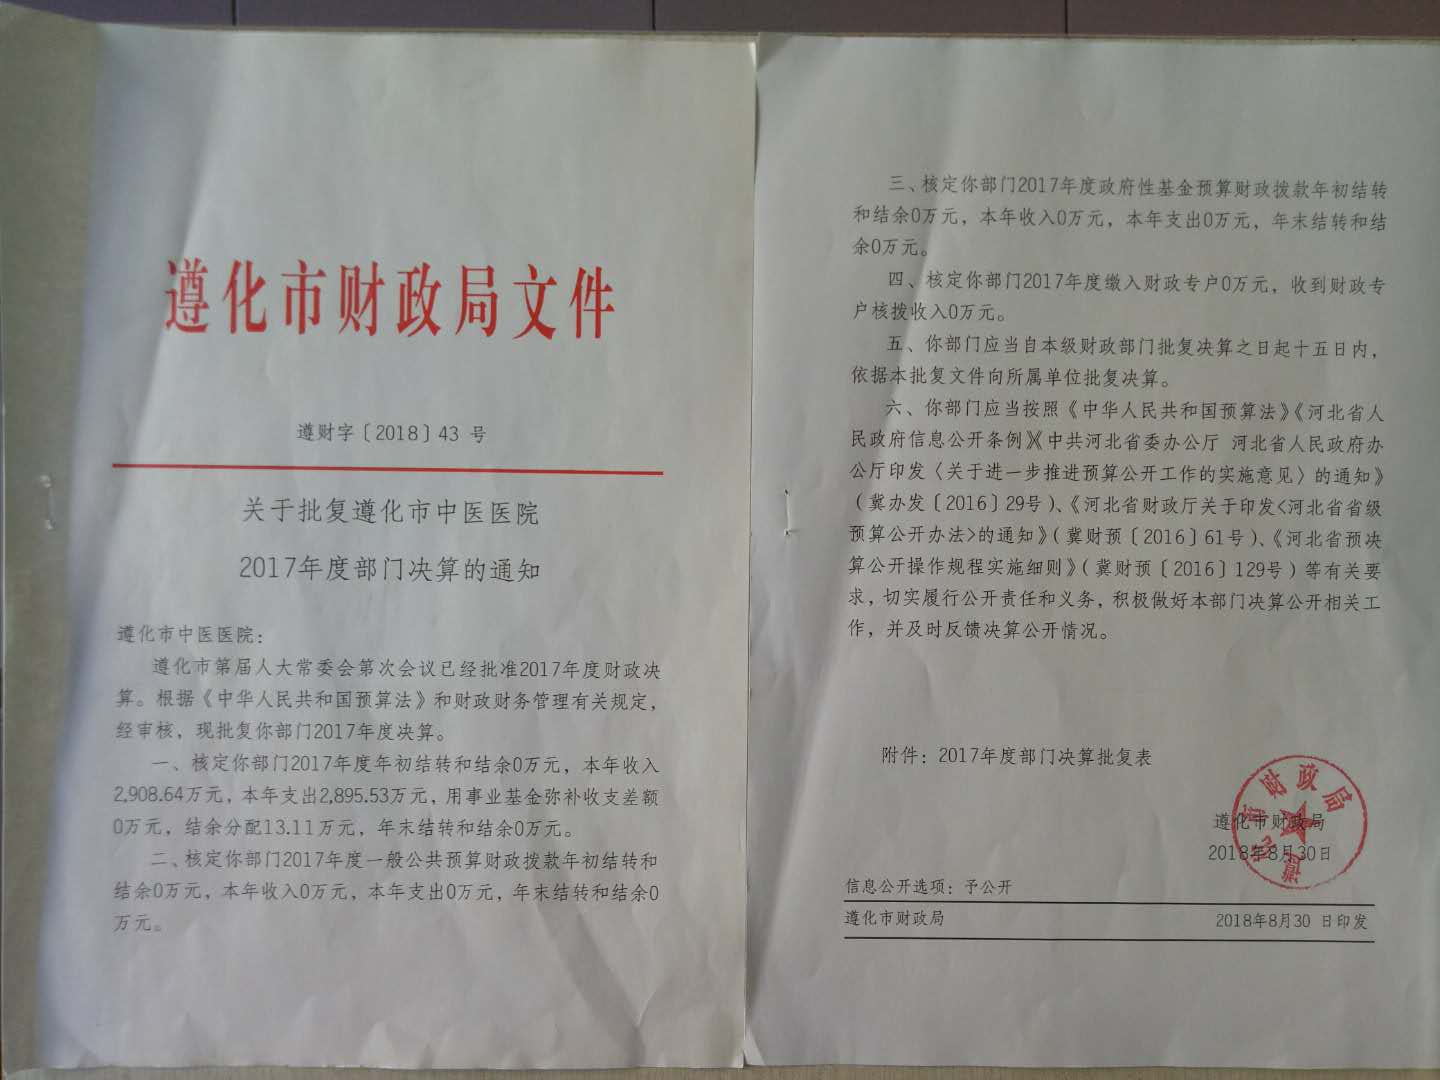 遵化市财政局文件
遵财字〔2018〕43 号
关于批复遵化市中医医院
2017年度部门决算的通知
遵化市中医医院：
遵化市第届人大常委会第次会议已经批准2017年度财政决
算。根据《中华人民共和国预算法》和财政财务管理有关规定，
经审核，现批复你部门2017年度决算。
一、核定你部门2017年度年初结转和结余0万元，本年收入
2,908.64万元，本年支出2,895.53万元，用事业基金弥补收支差额
0万元，结余分配13.11万元，年末结转和结余0万元。
二、核定你部门2017年度一般公共预算财政拨款年初结转和
结余0万元，本年收入0万元，本年支出0万元，年末结转和结余0
万元。
三、核定你部门2017年度政府性基金预算财政拨款年初结转
和结余0万元，本年收入0万元，本年支出0万元，年末结转和结
余0万元。
四、核定你部门2017年度缴入财政专户0万元，收到财政专
户核拨收入0万元。
五、你部门应当自本级财政部门批复决算之日起十五日内，
依据本批复文件向所属单位批复决算。
六、你部门应当按照《中华人民共和国预算法》《河北省人
民政府信息公开条例》《中共河北省委办公厅 河北省人民政府办
公厅印发〈关于进一步推进预算公开工作的实施意见〉的通知》
（冀办发〔2016〕29号）、《河北省财政厅关于印发<河北省省级
预算公开办法>的通知》（冀财预〔2016〕61号）、《河北省预决
算公开操作规程实施细则》（冀财预〔2016〕129号）等有关要
求，切实履行公开责任和义务，积极做好本部门决算公开相关工
作，并及时反馈决算公开情况。
附件：2017年度部门决算批复表
遵化市财政局
遵化市财政局
2018年8月30日
信息公开选项：予公开
遵化市财政局 2018年8月30 日印发